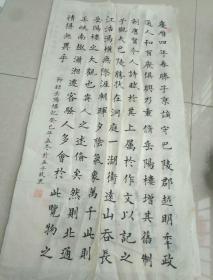 慶曆四年春滕子京謫守巴陵郡越明年政
通人和百廢俱興乃重修岳陽樓增其舊制
刻唐賢今人詩賦於其上屬予作文以記之
予觀夫巴陵勝狀在洞庭一湖銜遠山吞長
江浩湯橫無際涯朝暉夕陰氣象萬千此則
岳陽樓之大觀也前人之述備矣然則北通
巫峽南極瀟湘遷客騷人多會於此覽物之
情得無異乎 節錄岳陽樓記癸巳年孟冬於